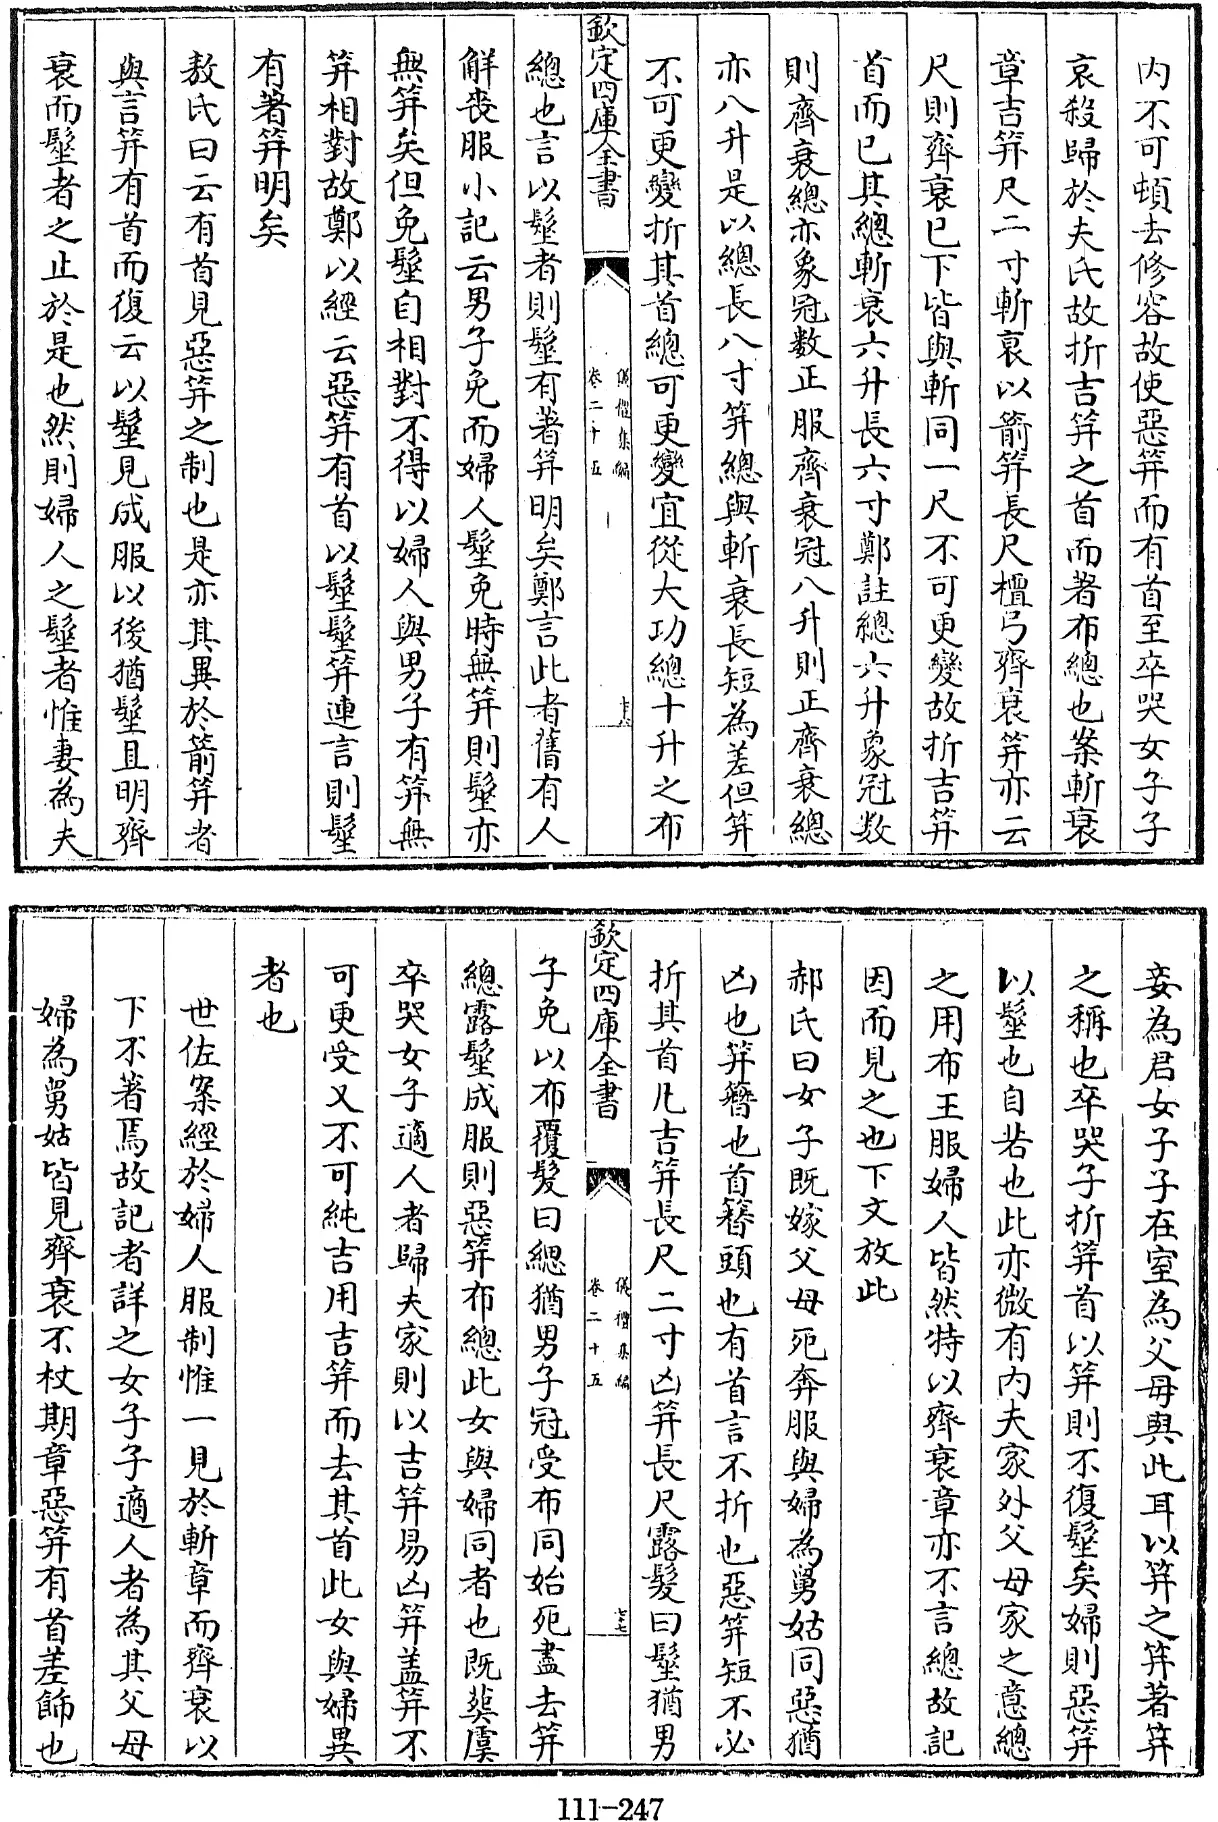 内不可頓去修容故使惡笄而有首至卒哭女子子
哀殺歸於夫氏故折吉笄之首而著布總也案斬衰
章吉笄尺二寸斬衰以箭笄長尺檀弓齊衰笄亦云
尺則齊衰已下皆與斬同一尺不可更變故折吉笄
首而已其總斬衰六升長六寸鄭註總六升象冠數
則齊衰總亦象冠數正服齊衰冠八升則正齊衰總
亦八升是以總長八寸笄總與斬衰長短為差但笄
不可更變折其首總可更變宜從大功總十升之布
欽定四庫全書
儀禮集編
卷二十五
總也言以髽者則髽有著笄明矣鄭言此者舊有人
解喪服小記云男子免而婦人髽免時無笄則髽亦
無笄矣但免髽自相對不得以婦人與男子有笄無
笄相對故鄭以經云惡笄有首以髽髽笄連言則髽
有著笄明矣
敖氏曰云有首見惡笄之制也是亦其異於箭笄者
與言笄有首而復云以髽見成服以後猶髽且明齊
衰而髽者之止於是也然則婦人之髽者惟妻為夫
妾為君女子子在室為父母與此耳以笄之笄著笄
之稱也卒哭子折笄首以笄則不復髽矣婦則惡笄
以髽也自若也此亦微有内夫家外父母家之意總
之用布王服婦人皆然特以齊衰章亦不言總故記
因而見之也下文放此
郝氏曰女子既嫁父母死奔服與婦為舅姑同惡猶
凶也笄簪也首簪頭也有首言不折也惡笄短不必
折其首凡吉笄長尺二寸凶笄長尺露髮曰髽猶男
欽定四庫全書
儀禮集編
卷二十五
子免以布覆髮曰總猶男子冠受布同始死盡去笄
總露髽成服則惡笄布總此女與婦同者也既葬虞
卒哭女子適人者歸夫家則以吉笄易凶笄蓋笄不
可更受又不可純吉用吉笄而去其首此女與婦異
者也
世佐案經於婦人服制惟一見於斬章而齊衰以
下不著焉故記者詳之女子子適人者為其父母
婦為舅姑皆見齊衰不杖期章惡笄有首差飾也
111-247